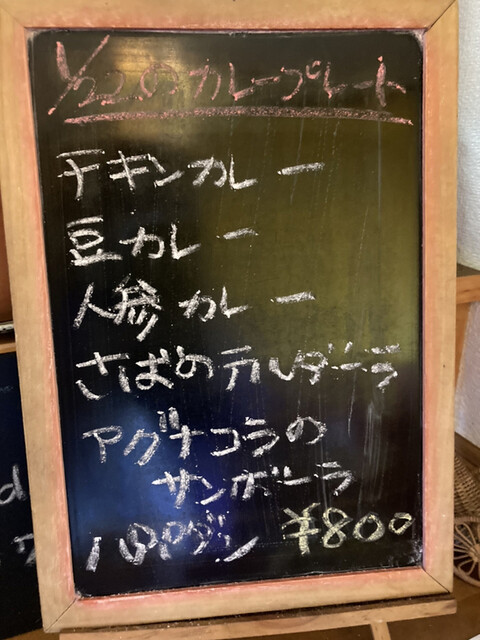 1/22のカレープレート
チキンカレー
豆カレー
人参カレー
さばのテルダーラ
アグナコラの
サンボーラ
パパダン ¥800
d